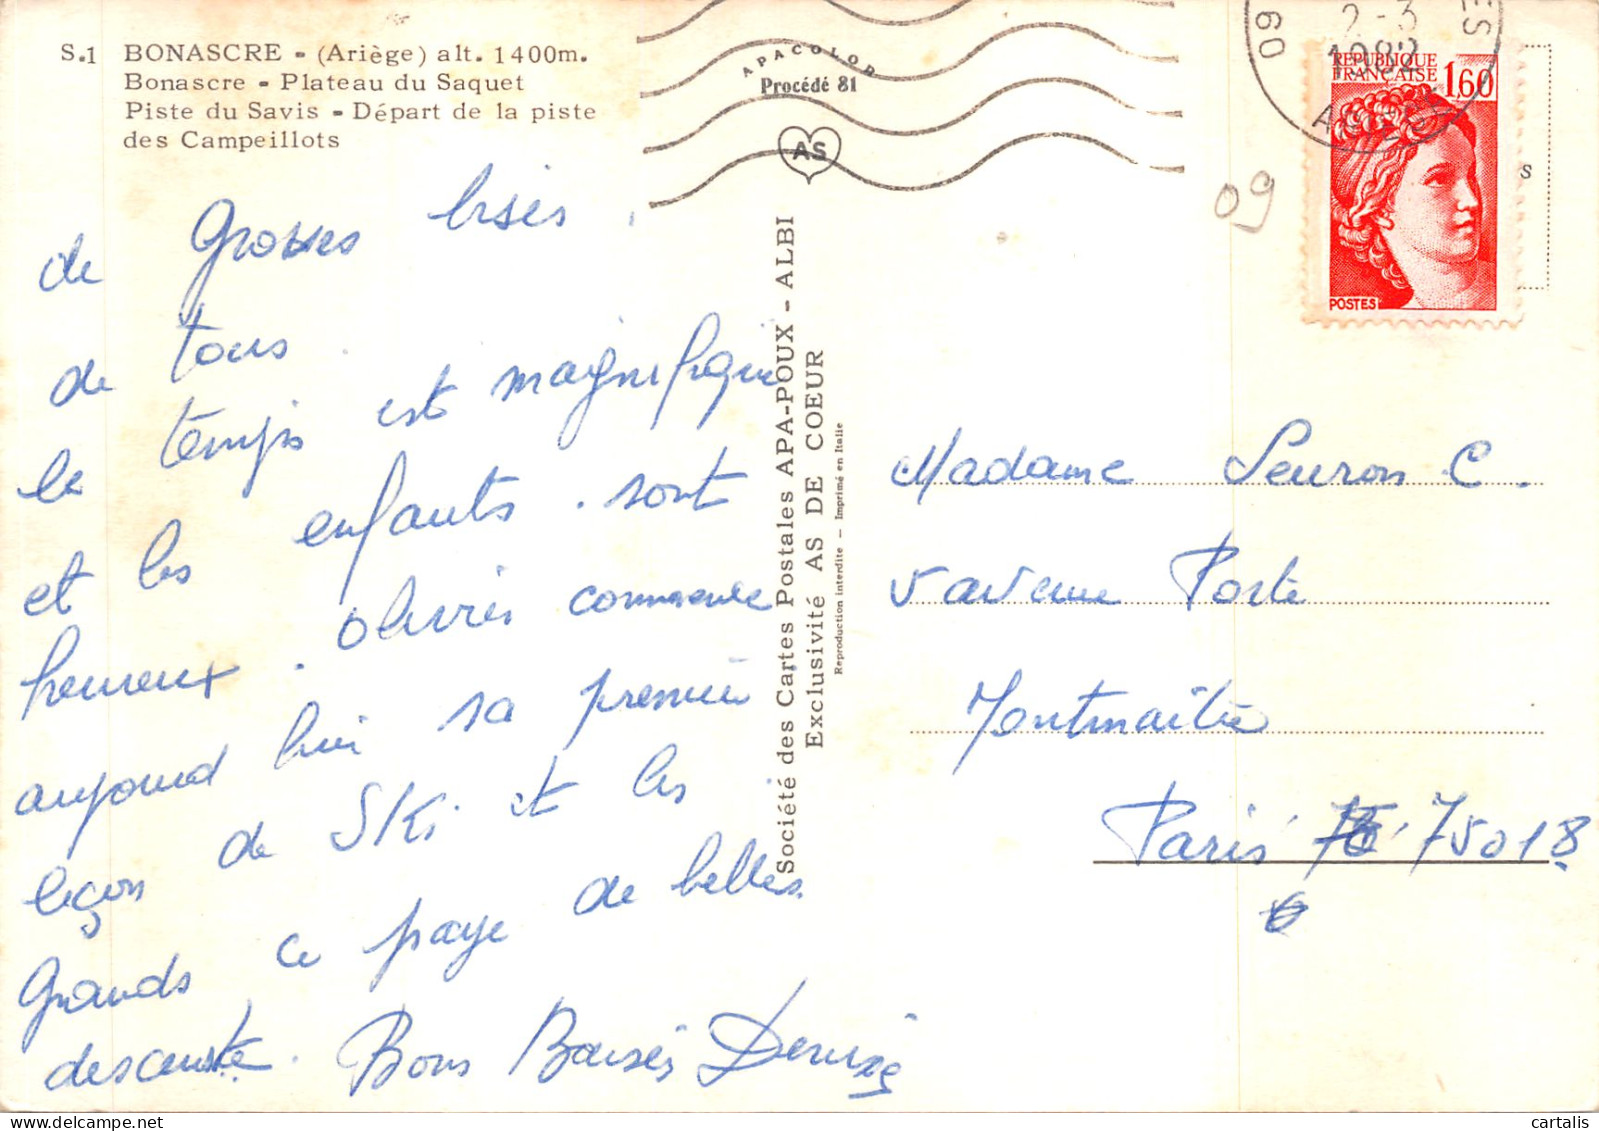 S.1 BONASCRE - (Ariège) alt. 1400m.
Bonascre - Plateau du Saquet
Piste du Savis - Départ de la piste
des Campeillots
APACOLOR
Procédé 81
AS
09
2-3
1982
RÉPUBLIQUE
FRANÇAISE 1,60
POSTES
09
s
de Grosses bises
de tous
le temps est magnifique
et les enfants sont
heureux. Olivier commence
aujourd hui sa première
leçon de SKi et les
Grands se paye de belles
descente. Bons Baisés Denise
Société des Cartes Postales APA-POUX - ALBI
Exclusivité AS DE COEUR
Reproduction interdite - Imprimé en Italie
Madame Seuron C.
5 avenue Porte
Montmartre
Paris 75018
cartalis